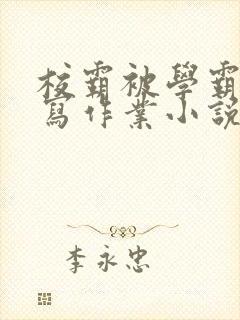 校霸被學霸
寫作業小說
李永忠